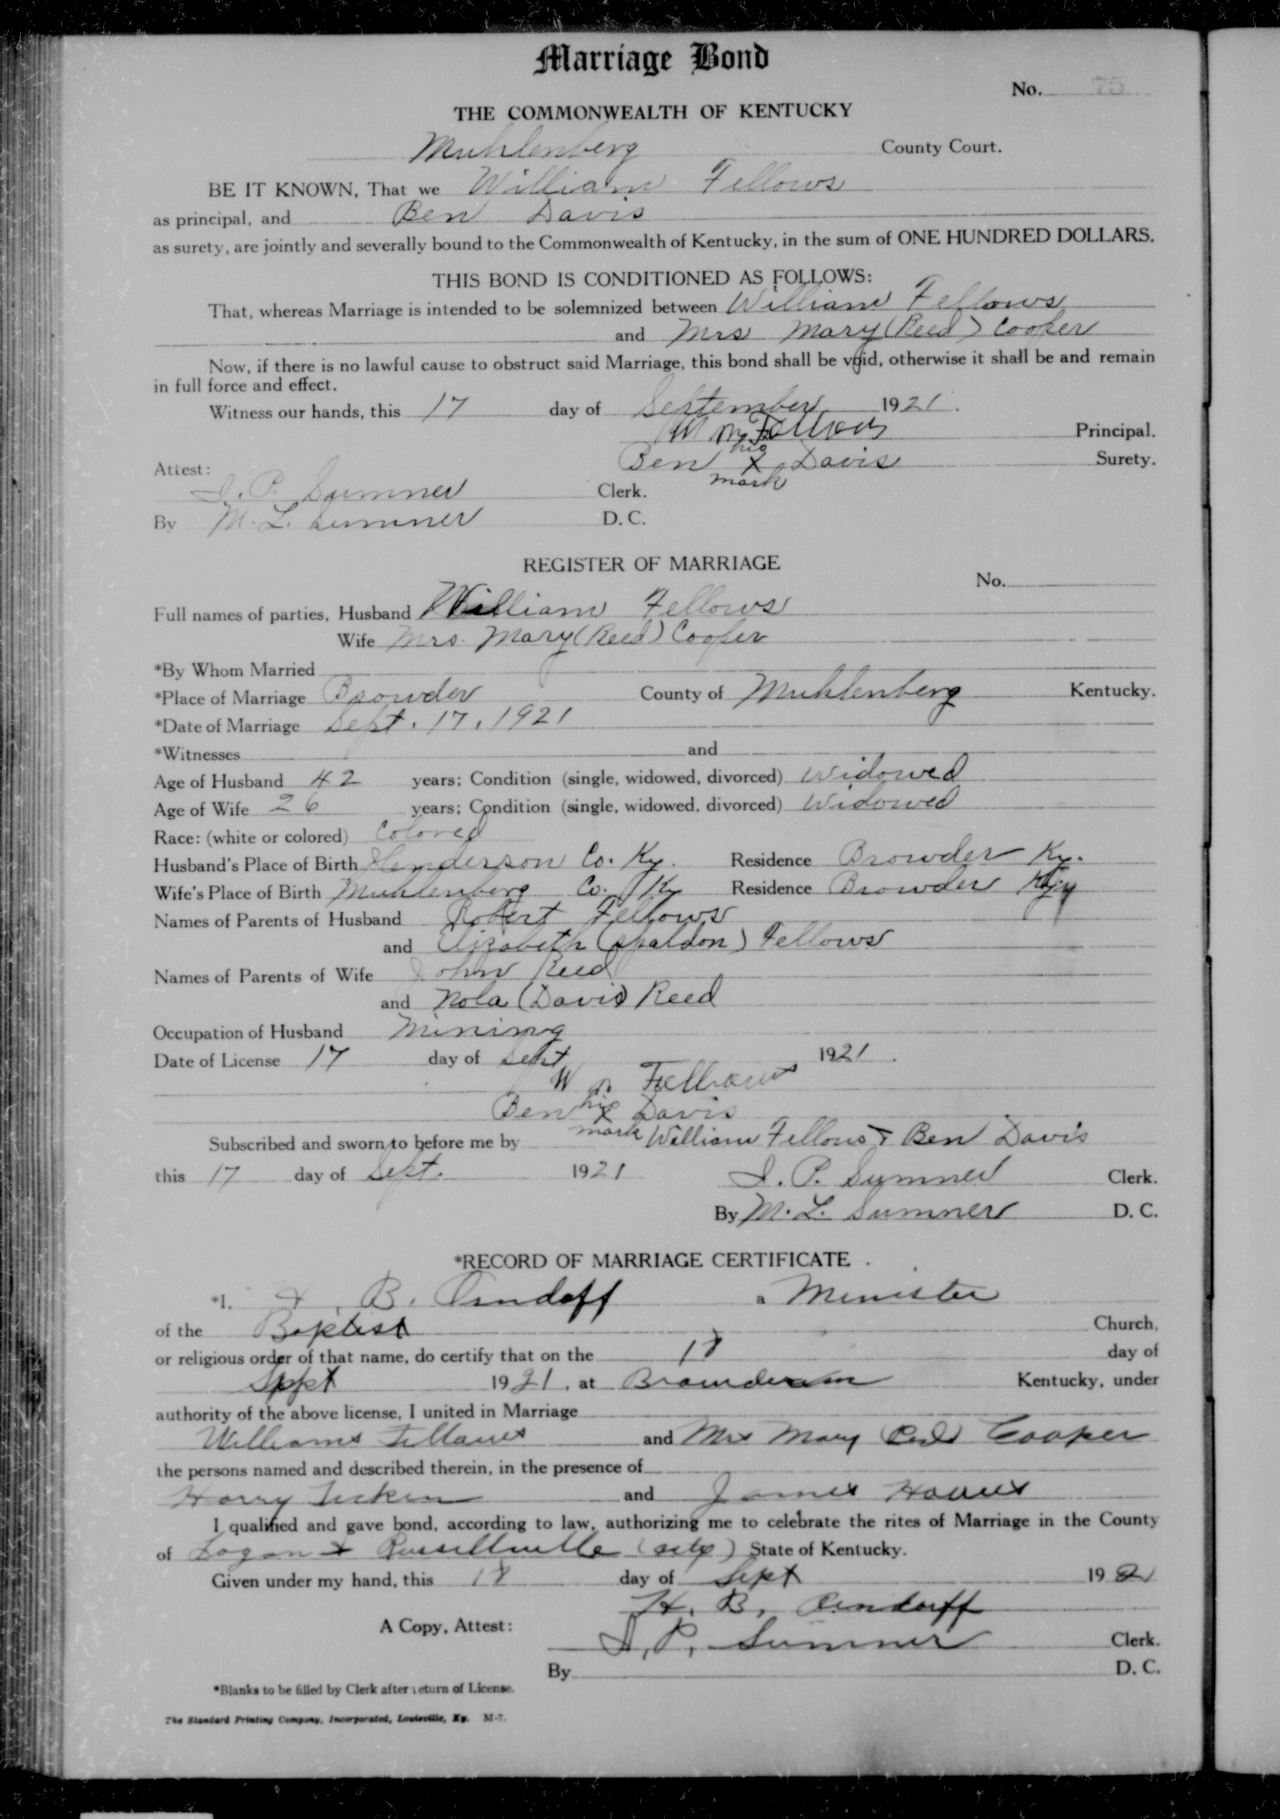 Marriage Bond
No. 75
THE COMMONWEALTH OF KENTUCKY
Muhlenberg County Court.
BE IT KNOWN, That we William Fellows
as principal, and Ben Davis
as surety, are jointly and severally bound to the Commonwealth of Kentucky, in the sum of ONE HUNDRED DOLLARS.
THIS BOND IS CONDITIONED AS FOLLOWS:
That, whereas Marriage is intended to be solemnized between William Fellows
and Mrs Mary (Reed) Cooper
Now, if there is no lawful cause to obstruct said Marriage, this bond shall be void, otherwise it shall be and remain
in full force and effect.
Witness our hands, this 17 day of September 1921.
Wm Fellows Principal.
Ben his X mark Davis Surety.
Attest:
I. P. Sumner Clerk.
By M. L. Sumner D. C.
REGISTER OF MARRIAGE
No.
Full names of parties, Husband William Fellows
Wife Mrs. Mary (Reed) Cooper
*By Whom Married
*Place of Marriage Browder County of Muhlenberg Kentucky.
*Date of Marriage Sept. 17, 1921
*Witnesses and
Age of Husband 42 years; Condition (single, widowed, divorced) Widowed
Age of Wife 26 years; Condition (single, widowed, divorced) Widowed
Race: (white or colored) Colored
Husband's Place of Birth Henderson Co. Ky. Residence Browder Ky.
Wife's Place of Birth Muhlenberg Co. Ky Residence Browder Ky
Names of Parents of Husband Robert Fellows
and Elizabeth (Spaldon) Fellows
Names of Parents of Wife John Reed
and Nola (Davis) Reed
Occupation of Husband Mining
Date of License 17 day of Sept 1921.
Wm Fellows
Ben his X mark Davis
Subscribed and sworn to before me by William Fellows & Ben Davis
this 17 day of Sept. 1921 I. P. Sumner Clerk.
By M. L. Sumner D. C.
*RECORD OF MARRIAGE CERTIFICATE.
*I, H. B. Orndoff a Minister
of the Baptist Church,
or religious order of that name, do certify that on the 18 day of
Sept 1921, at Browder Kentucky, under
authority of the above license, I united in Marriage
Williams Fellows and Mrs Mary (Reed) Cooper
the persons named and described therein, in the presence of
Harry and James
I qualified and gave bond, according to law, authorizing me to celebrate the rites of Marriage in the County
of Logan & Russellville (city) State of Kentucky.
Given under my hand, this 18 day of Sept 1921
H. B. Orndorff
A Copy, Attest:
I. P. Sumner Clerk.
By D. C.
*Blanks to be filled by Clerk after return of License.
The Standard Printing Company, Incorporated, Louisville, Ky. M-7.